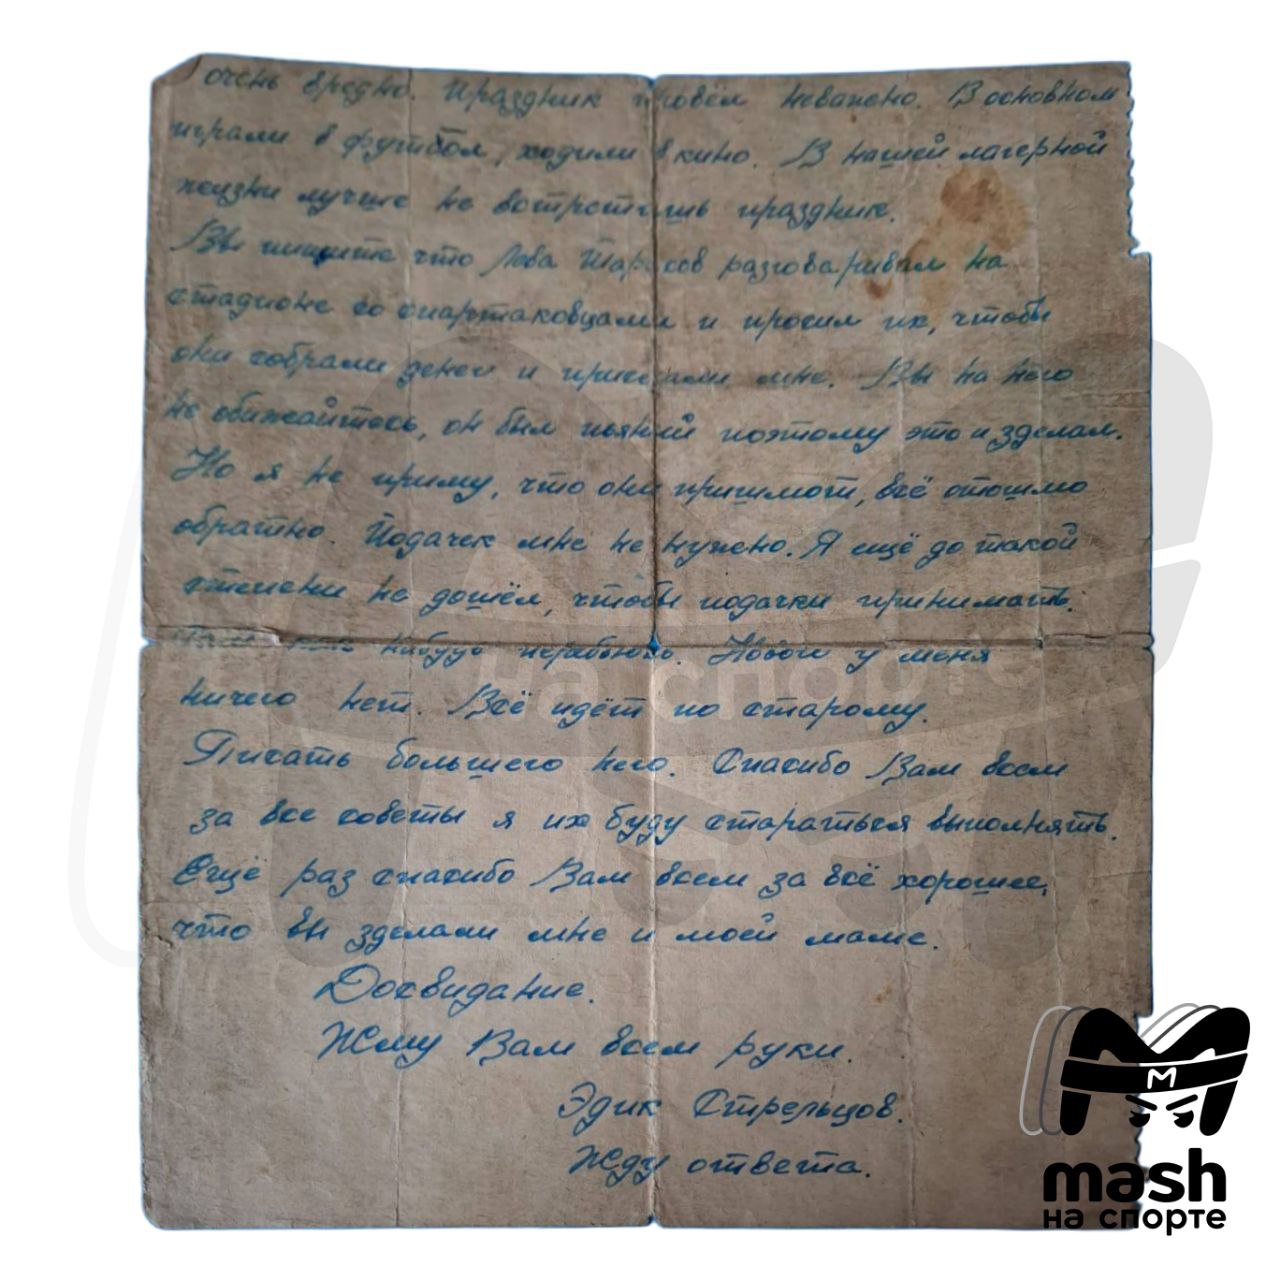 очень вредно. Праздник провёл неважно. В основном
играли в футбол, ходили в кино. В нашей лагерной
жизни лучше не встретишь праздник.
Вы пишите что Лёва Тарасов разговаривал на
стадионе со спартаковцами и просил их, чтобы
они собрали денег и прислали мне. Вы на него
не обижайтесь, он был пьяный поэтому это и зделал.
Но я не приму, что они пришлют, всё отошлю
обратно. Подачек мне не нужно. Я ещё до такой
степени не дошёл, чтобы подачки принимать.
нибудь Новости у меня
ничего нет. Всё идёт по старому.
Писать большего него. Спасибо Вам всем
за все советы я их буду стараться выполнять.
Ещё раз спасибо Вам всем за всё хорошее,
что вы зделали мне и моей маме.
Досвидание.
Жму Вам всем руки.
Эдик Стрельцов.
Жду ответа.
на спорте
M
mash
на спорте